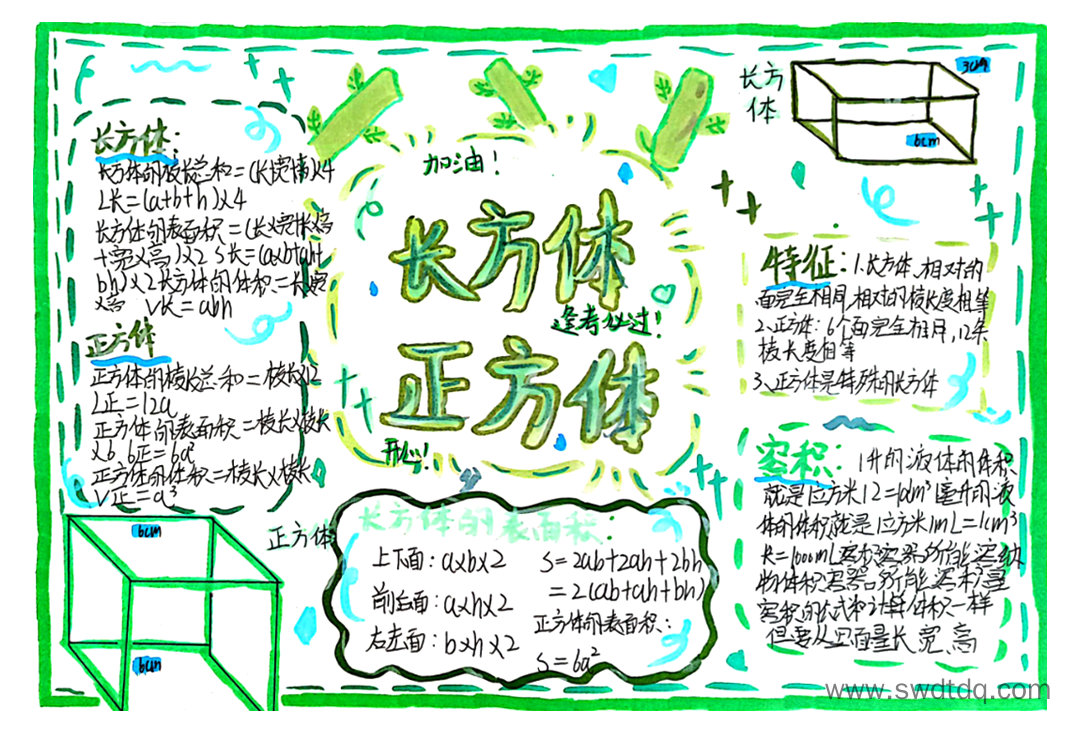 长方体:
长方体的棱长总和=(长宽高)×4
L长=(a+b+h)×4
长方体的表面积=(长×宽+长×高
+宽×高)×2 S长=(a×b+ah+
bh)×2 长方体的体积=长×宽
×高 V长=abh
正方体
正方体的棱长总和=棱长×12
L正=12a
正方体的表面积=棱长×棱长
×6 6正=6a²
正方体的体积=棱长×棱长
V正=a³
6cm
6cm
正方体
加油!
长方体
逢考必过!
正方体
开心!
长方体的表面积:
上下面:a×b×2
前后面:a×h×2
右左面:b×h×2
S=2ab+2ah+2bh
=2(ab+ah+bh)
正方体的表面积:
S=6a²
长方
体
3cm
6cm
特征:1.长方体、相对的
面完全相同,相对的棱长度相等
2、正方体:6个面完全相同,12条
棱长度相等
3、正方体是特殊的长方体
容积:1升的液体的体积
就是1立方米12=1dm³ 1毫升的液
体的体积就是1立方米1mL=1cm³
=1000mL容积容器所能容纳
物体积容器所能容积量
容积的公式和计算体积一样
但要从里面量长、宽、高
www.swdtdq.com